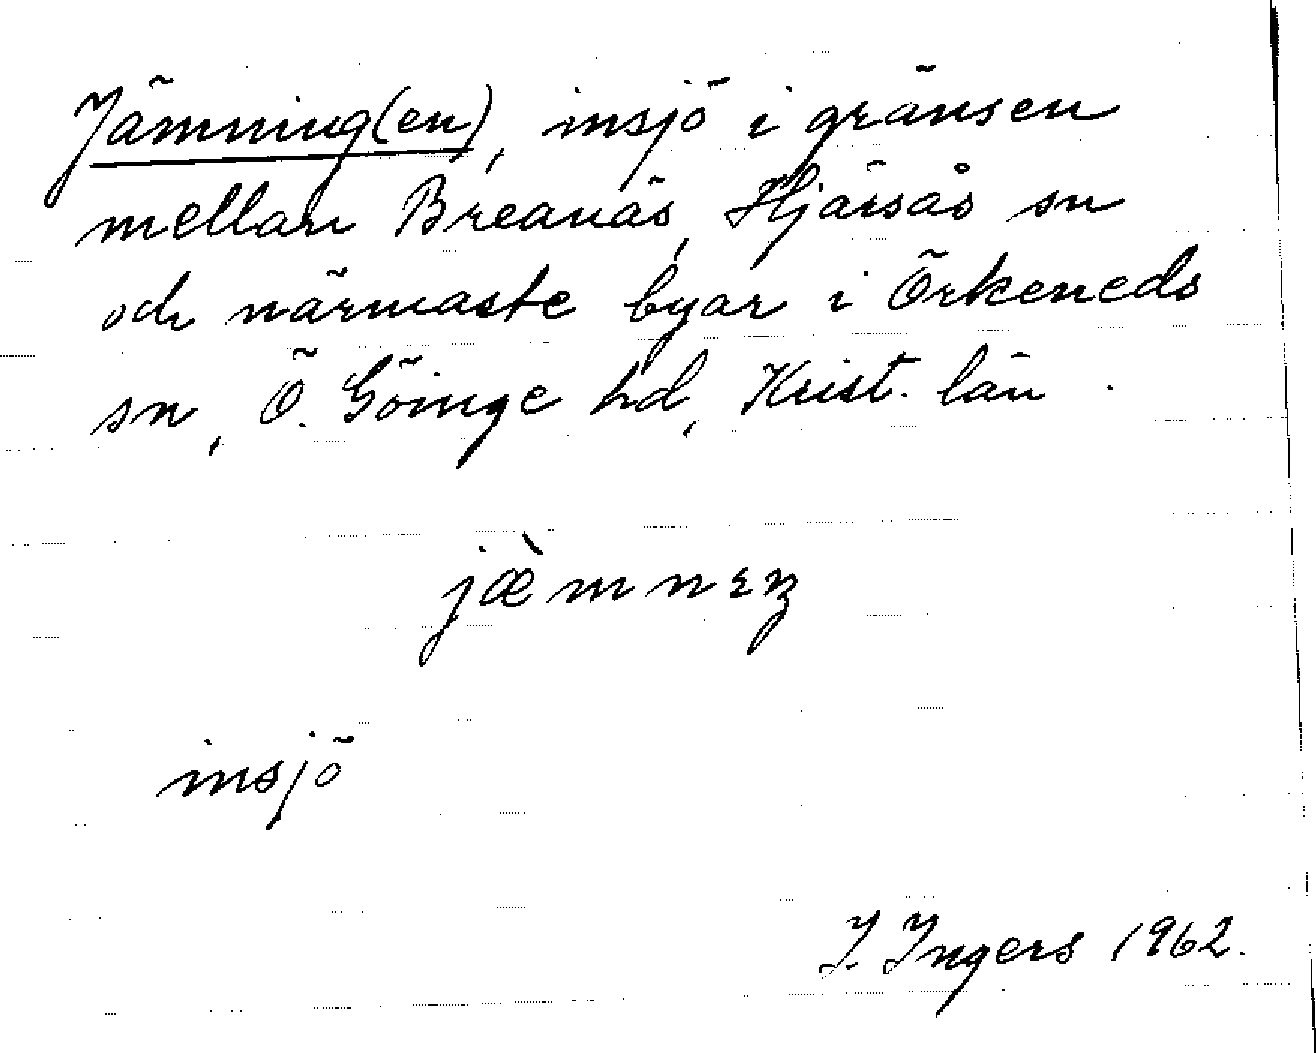 Jämning(en), insjö i gränsen
mellan Breanäs, Hjärsås sn
och närmaste byar i Örkeneds
sn, Ö. Göinge hd, Krist. län.
jæ̀mnıŋ
insjö
I. Ingers 1962.